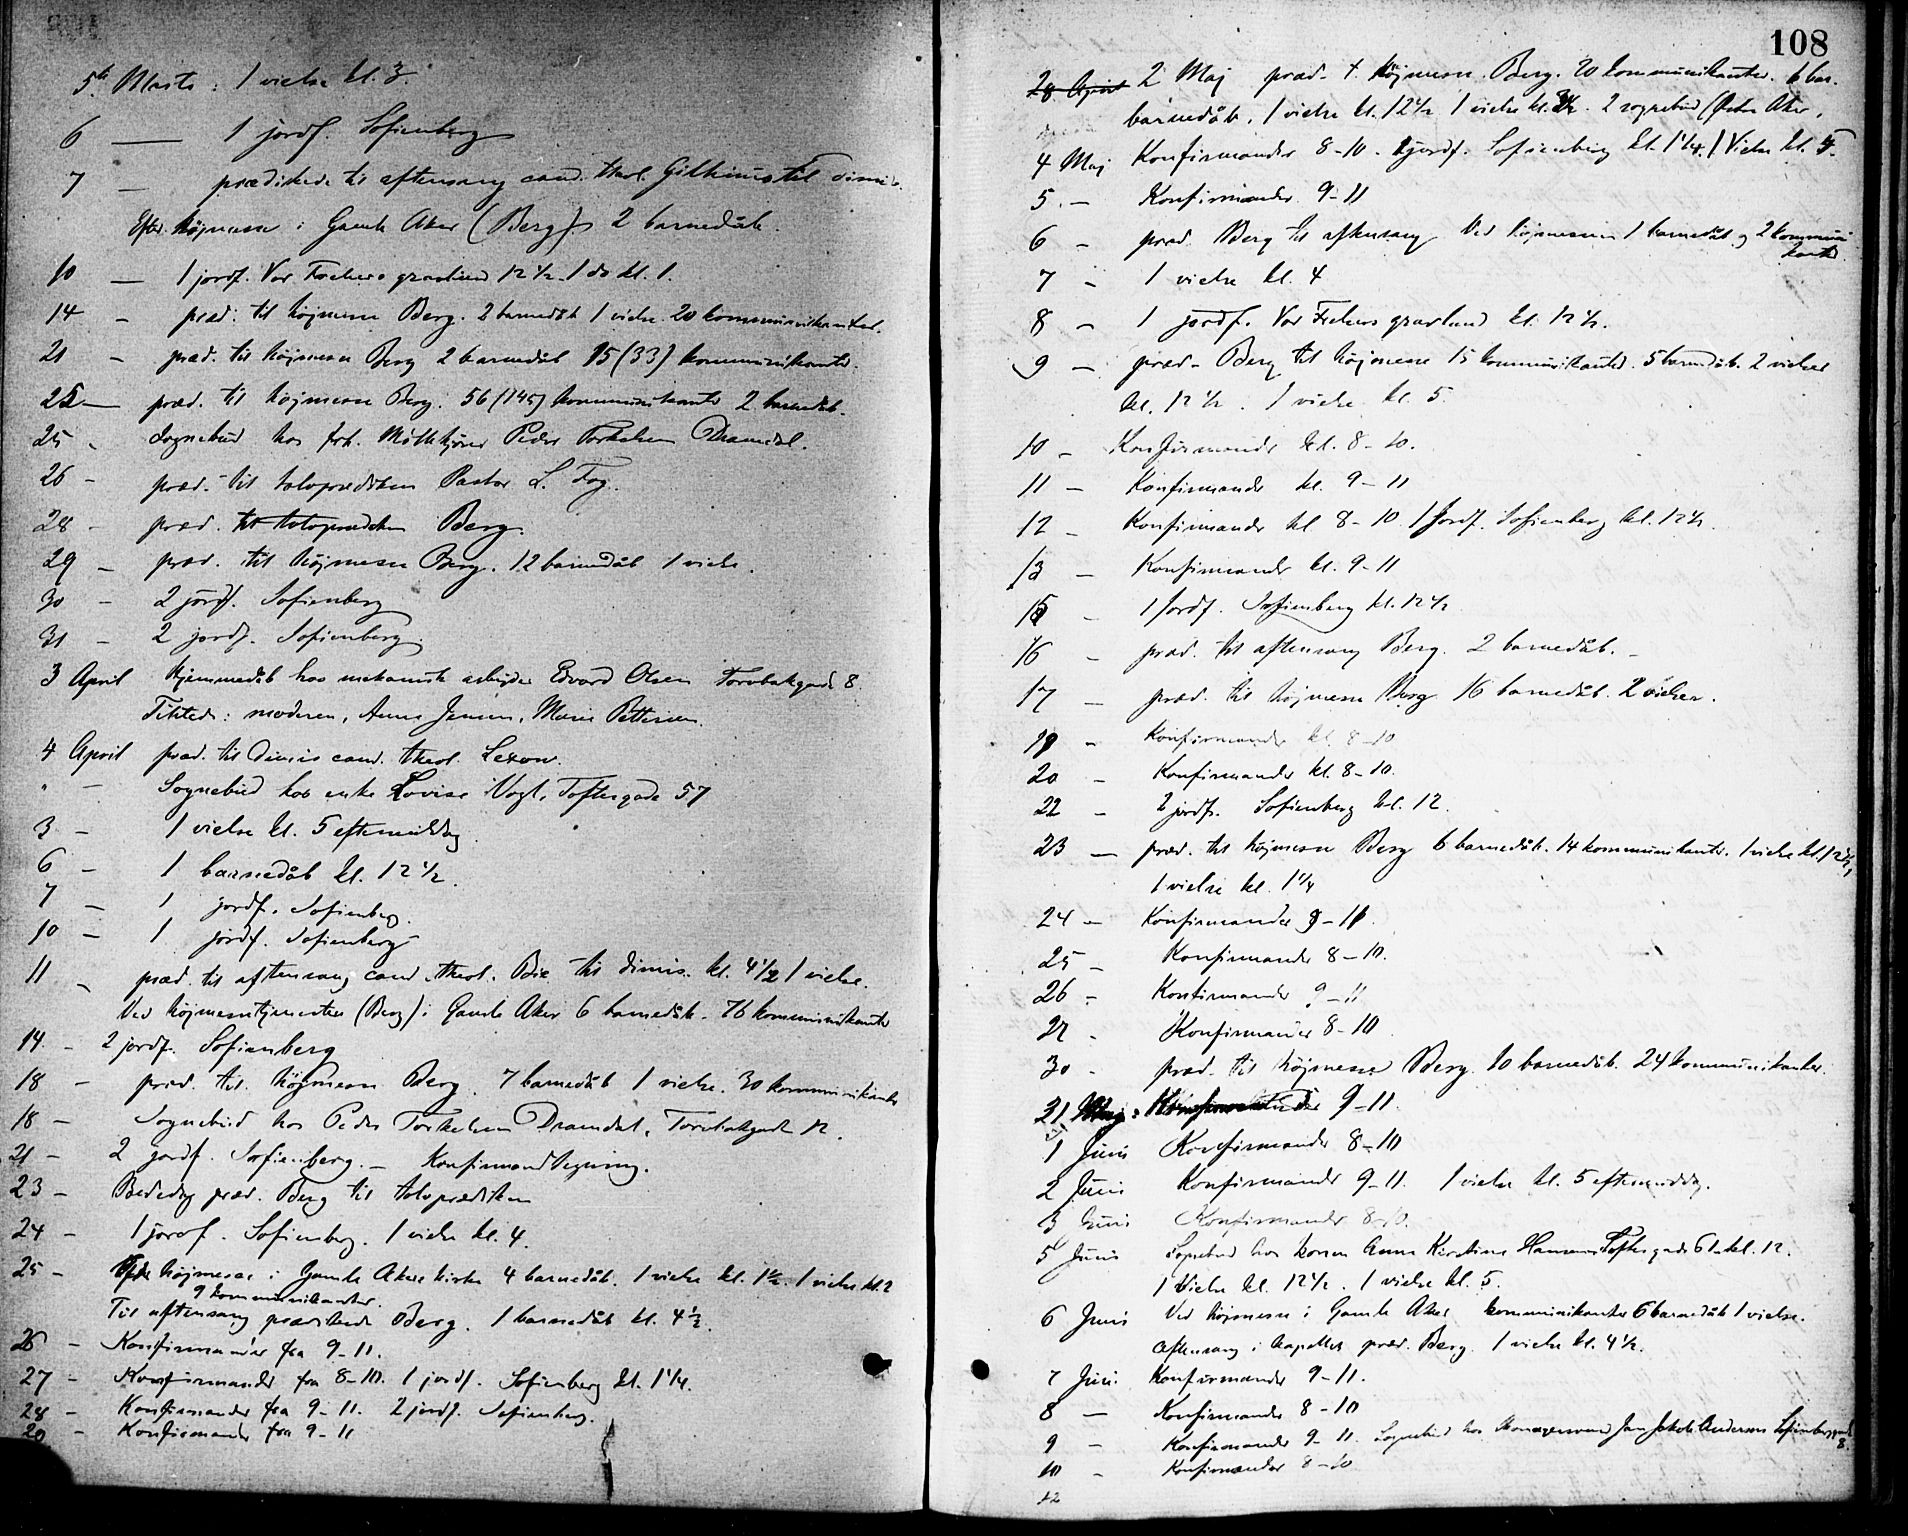 5te Marts: 1 vielse kl. 3.
6 — 1 jordf. Sofienberg
7 — prædikede til aftensang cand. theol. til dimis.
Efter højmesse i Gamle Aker (Berg) 2 barnedåb.
10 — 1 jordf. Vor Frelsers gravlund 12 1/2. 1 do kl. 1.
14 - præd. til højmesse Berg. 2 barnedåb 1 vielse. 20 kommunikanter.
21 - præd. til højmesse Berg 2 barnedåb 15 (33) kommunikanter.
25 — præd. til højmesse Berg. 56 (145) kommunikanter 2 barnedåb.
25 - Sognebud hos Peder Torkelsen Dramdal.
26 - præd. til tolvprædiken Pastor L. Fog.
28 - præd. til tolvprædiken Berg.
29 - præd. til højmesse Berg. 12 barnedåb 1 vielse.
30 - 2 jordf. Sofienberg
31 - 2 jordf. Sofienberg.
3 April Hjemmedåb hos mekanisk arbejder Edvard Olsen Torvbakgade 8.
Tilstede: moderen, Anna Jensen, Marie Pettersen.
4 April præd. til Dimis cand. theol. Lexow.
" - Sognebud hos enke Lovise Vogt, Toftesgade 57
3 - 1 vielse kl. 5 eftermiddag
6 - 1 barnedåb kl. 12 1/2.
7 - 1 jordf. Sofienberg.
10 - 1 jordf. Sofienberg
11 - præd. til aftensang cand. theol. Bie til dimis. kl. 4 1/2 1 vielse.
Ved højmessetjenesten (Berg) i Gamle Aker 6 barnedåb. 76 kommunikanter
14 - 2 jordf. Sofienberg
18 - præd. til højmesse Berg. 7 barnedåb 1 vielse. 30 kommunikanter
18 - Sognebud hos Peder Torkelsen Dramdal, Torvbakgade 12.
21 - 2 jordf. Sofienberg. - Konfirmandtegning.
23 - Bededag præd. Berg til tolvprædiken
24 - 1 jordf. Sofienberg. 1 vielse kl. 4.
25 - Efter højmesse i Gamle Akers kirke 4 barnedåb. 1 vielse kl. 1 1/2. 1 vielse kl. 2
9 kommunikanter.
Til aftensang prædikede Berg. 1 barnedåb kl. 4 1/2.
26 - Konfirmander fra 9-11.
27 - Konfirmander fra 8-10. 1 jordf. Sofienberg kl. 1 1/4.
28 - Konfirmander fra 9-11. 2 jordf. Sofienberg.
29 - Konfirmander fra 9-11
108
28 April 2 Maj præd. t. højmesse Berg. 20 kommunikanter. 6 bar-
barnedåb, 1 vielse kl. 12 1/2 1 vielse kl. 2 sognebud (Østre Aker.
4 Maj Konfirmander 8-10. jordf. Sofienberg kl. 1 1/4. 1 Vielse kl. 5.
5 - Konfirmander 9-11
6 - præd. Berg til aftensang Ved højmessen 1 barnedåb og 2 kommuni-
kanter.
7 - 1 vielse kl. 4
8 - 1 jordf. Vor Frelsers gravlund kl. 12 1/2.
9 - præd. Berg til højmesse 15 kommunikanter. 5 barnedåb. 2 vielser
kl. 12 1/2. 1 vielse kl. 5.
10 - Konfirmander kl. 8-10.
11 - Konfirmander kl. 9-11
12 - Konfirmander kl 8-10. 1 Jordf. Sofienberg kl. 12 1/2.
13 - Konfirmander kl. 9-11
15 1 Jordf. Sofienberg kl. 12 1/2.
16 - præd. til aftensang Berg. 2 barnedåb. -
17 - præd. til højmesse Berg 16 barnedåb. 2 vielser.
19 - Konfirmander kl. 8-10
20 - Konfirmander kl. 8-10.
22 - 2 jordf. Sofienberg kl. 12.
23 — præd. til højmesse Berg 6 barnedåb. 14 kommunikanter. 1 vielse kl. 12 1/2,
1 vielse kl. 1 1/4
24 - Konfirmander 9-11.
25 - Konfirmander 8-10.
26 - Konfirmander 9-11
27 - Konfirmander 8-10
30 - præd. til højmesse Berg. 10 barnedåb. 24 kommunikanter.
31 Maj: Konfirmander 9-11.
1 Juni Konfirmander 8-10
2 Juni Konfirmander 9-11. 1 vielse kl. 5 eftermiddag.
3 Juni Konfirmander 8-10.
5 Juni Sognebud hos konen Anna Kirstine Hansen Toftesgade 61 kl. 12.
1 Vielse kl. 12 1/2. 1 vielse kl. 5.
6 Juni Ved højmesse i Gamle Aker kommunikanter 6 barnedåb 1 vielse.
Aftensang i kapellet præd. Berg. 1 vielse kl. 4 1/2.
7 Juni. Konfirmander 9-11.
8 — Konfirmander 8-10
9 - Konfirmander 9-11. Sognebud hos Jakob Andersen Sofienberggade
8.
10 - Konfirmander 8-10
12